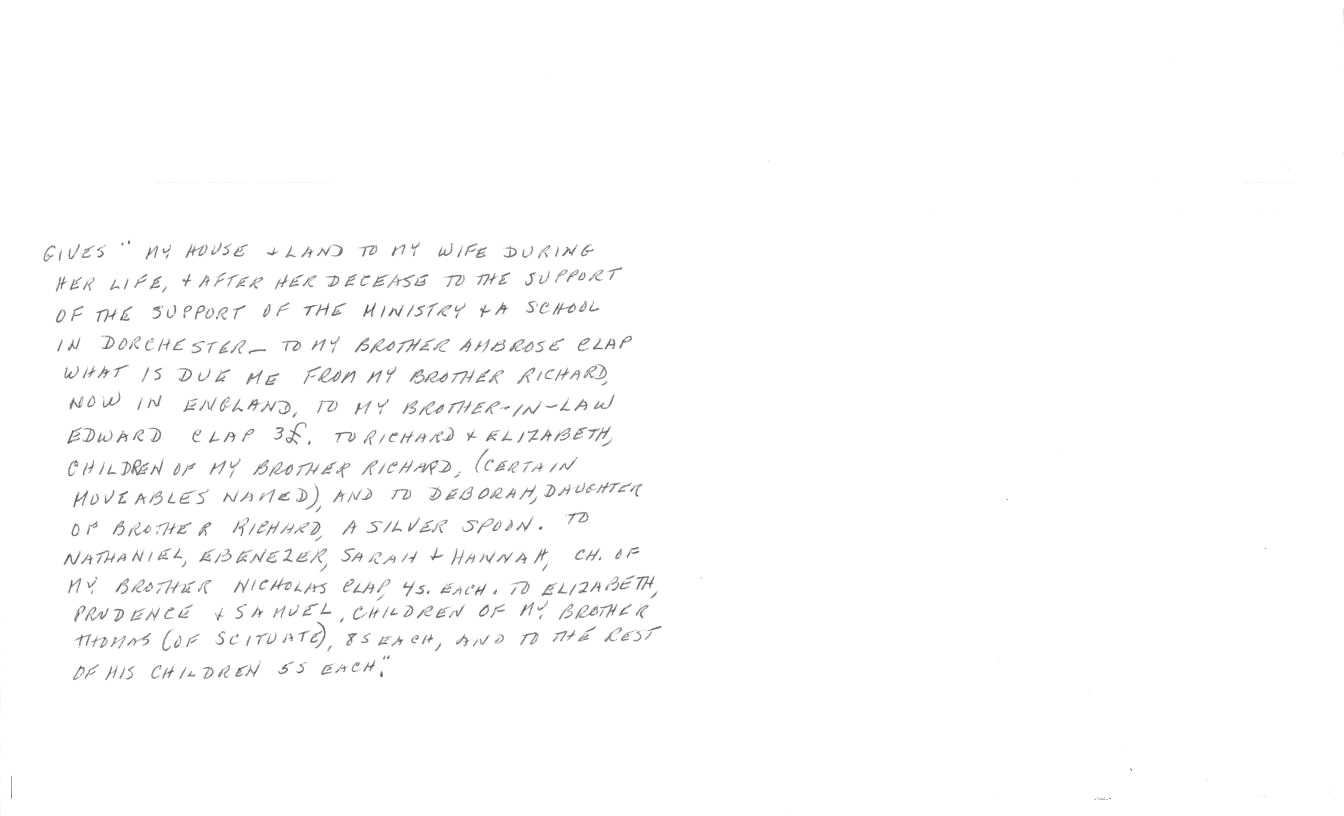 GIVES " MY HOUSE + LAND TO MY WIFE DURING
HER LIFE, + AFTER HER DECEASE TO THE SUPPORT
OF THE SUPPORT OF THE MINISTRY + A SCHOOL
IN DORCHESTER – TO MY BROTHER AMBROSE CLAP
WHAT IS DUE ME FROM MY BROTHER RICHARD,
NOW IN ENGLAND, TO MY BROTHER-IN-LAW
EDWARD CLAP 3£. TO RICHARD + ELIZABETH,
CHILDREN OF MY BROTHER RICHARD, (CERTAIN
MOVEABLES NAMED), AND TO DEBORAH, DAUGHTER
OF BROTHER RICHARD, A SILVER SPOON. TO
NATHANIEL, EBENEZER, SARAH + HANNAH, CH. OF
MY BROTHER NICHOLAS CLAP, 4S. EACH. TO ELIZABETH,
PRUDENCE + SAMUEL, CHILDREN OF MY BROTHER
THOMAS (OF SCITUATE), 8S EACH, AND TO THE REST
OF HIS CHILDREN 5S EACH."